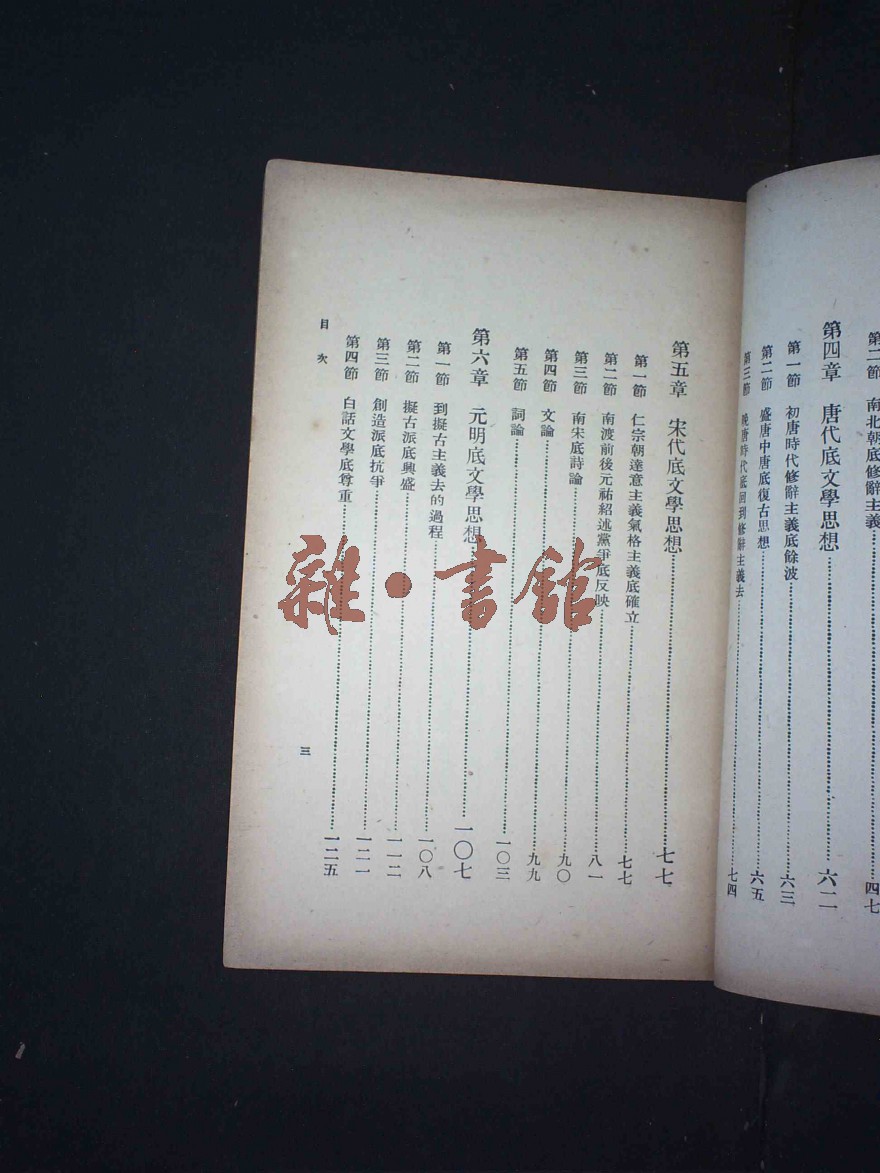 第二節 南北朝底修辭主義……四七
第四章 唐代底文學思想……六二
第一節 初唐時代修辭主義底餘波……六三
第二節 盛唐中唐底復古思想……六五
第三節 晚唐時代底回到修辭主義去……七四
第五章 宋代底文學思想……七七
第一節 仁宗朝達意主義氣格主義底確立……七七
第二節 南渡前後元祐紹述黨爭底反映……八一
第三節 南宋底詩論……九〇
第四節 文論……九九
第五節 詞論……一〇三
第六章 元明底文學思想……一〇七
第一節 到擬古主義去的過程……一〇八
第二節 擬古派底興盛……一一二
第三節 創造派底抗爭……一二一
第四節 白話文學底尊重……一二五
目次
三
雜·書館